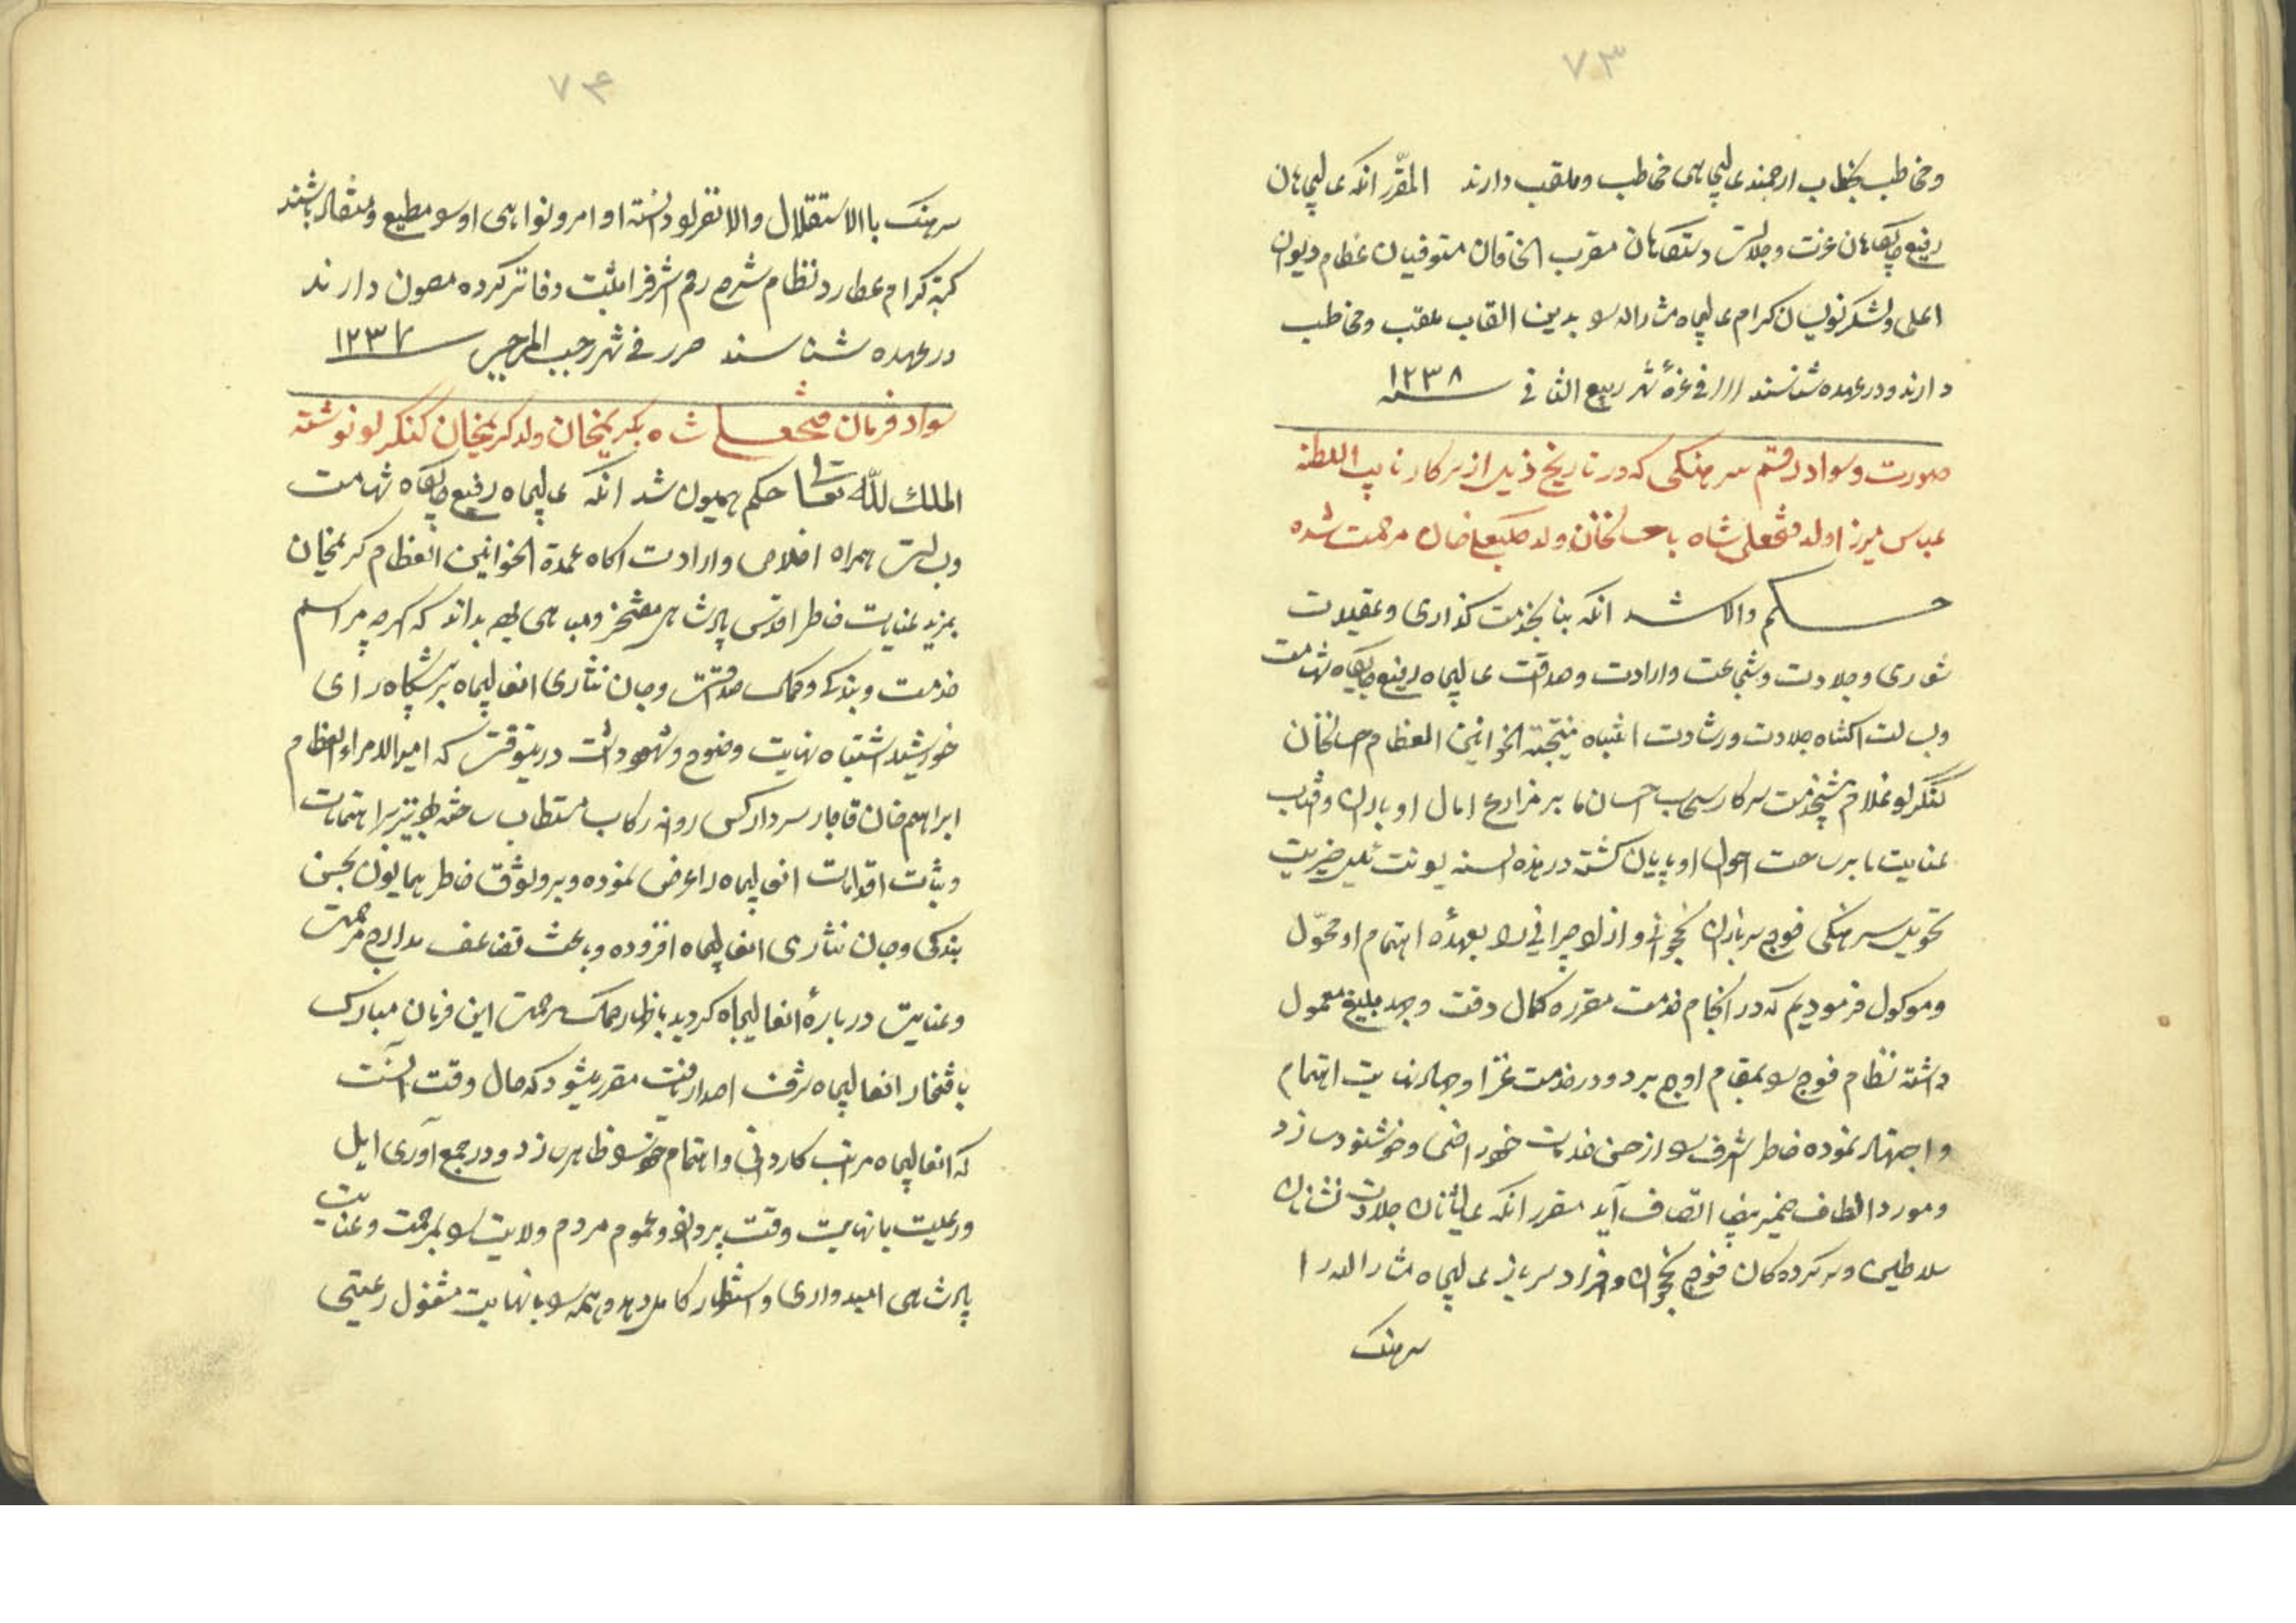 ۷۳
ومخاطب بخطاب ارجمند عالیجاهی مخاطب وملقب دارند المقرّر انکه عالیجاهان
رفیع جایگاهان عزت وجلالت دستگاهان مقرب الخاقان مستوفیان عظام دیوان
اعلی ولشکرنویسان کرام عالیجاه مشارالیه را بدین القاب ملقب ومخاطب
دارند ودر عهده شناسند فی غرهٔ شهر ربیع الثانی سنه ۱۲۳۸
صورت وسواد رقم سرهنکی که در تاریخ ذیل از سرکار نایب السلطنه
عباس میرزا ولد فتحعلی شاه باحسانخان ولد کلبعلیخان مرحمت شده
حکم والا شد انکه بنا بخدمت کذاری و
وجلادت وشجاعت وارادت وصداقت عالیجاه رفیع جایگاه شهامت
وبسالت اکتناه جلادت ورشادت انتباه نتیجة الخوانین العظام احسانخان
کنکرلو غلام پیشخدمت سرکار سحاب احسان ما بر مزارع امال او باران وافتاب
عنایت ما بر ساحت احوال او تابان کشته در هذه السنه یونت ئیل خیریت
تحویل سرهنکی فوج سربازان نخجوانی و را بعهدهٔ اهتمام او محوّل
وموکول فرمودیم که در انجام خدمت مقرره کمال دقت وجهد بلیغ معمول
داشته نظام فوج را بمقام اوج برد ودر خدمت غزا وجهاد نهایت اهتمام
واجتهاد نموده خاطر اشرف را از حسن خدمات خود راضی وخوشنود سازد
ومورد الطاف ضمیر اتصاف آید مقرر انکه عالیشانان جلادت نشانان
سلاطین وسرکردکان فوج نخجوان وافراد سرباز عالیجاه مشارالیه را
سرهنک
۷۴
سرهنک باالاستقلال والانفراد دانسته اوامر ونواهی او را مطیع ومنقاد باشند
کتبه کرام عطارد نظام شرح رقم اشرف را ثبت دفاتر کرده مصون دارند
در عهده شناسند حرر فی شهر رجب المرجب سنه ۱۲۳۷
سواد فرمان فتحعلی شاه بکریمخان ولد کریمخان کنکرلو نوشته
الملک لله تعالی حکم همیون شد انکه عالیجاه رفیع جایگاه شهامت
وبسالت همراه اخلاص وارادت اکاه عمدة الخوانین العظام کریمخان
بمزید عنایت خاطر اقدس پادشاهی مفتخر ومباهی بوده بداند که اکرچه مراسم
خدمت وبندکی وکمال صداقت وجان نثاری انعالیجاه بر پیشگاه رای
خورشید اشتباه نهایت وضوح وشهود داشت درینوقت که امیرالامراء العظام
ابراهیم خان قاجار سردار کس روانه رکاب مستطاب ساخته بود نیز اهتمامات
وثبات اقدامات انعالیجاه را عرض نموده وبر وثوق خاطر همایون بحسن
بندکی وجان نثاری انعالیجاه افزوده وباعث تضاعف مدارج مرحمت
وعنایت دربارهٔ انعالیجاه کردید باظهار مرحمت این فرمان مبارک
بافتخار انعالیجاه شرف اصدار یافت مقرر میشود که حال وقت آنست
که انعالیجاه مراتب کاردانی واهتمام خود را ظاهر سازد ودر جمع آوری ایل
ورعیت بانهایت وقت پردازد وعموم مردم ولایت را بمرحمت وعنایت
پادشاهی امیدواری واستظهار کامل دهد وهمه را بانهایت مشغول رعیتی